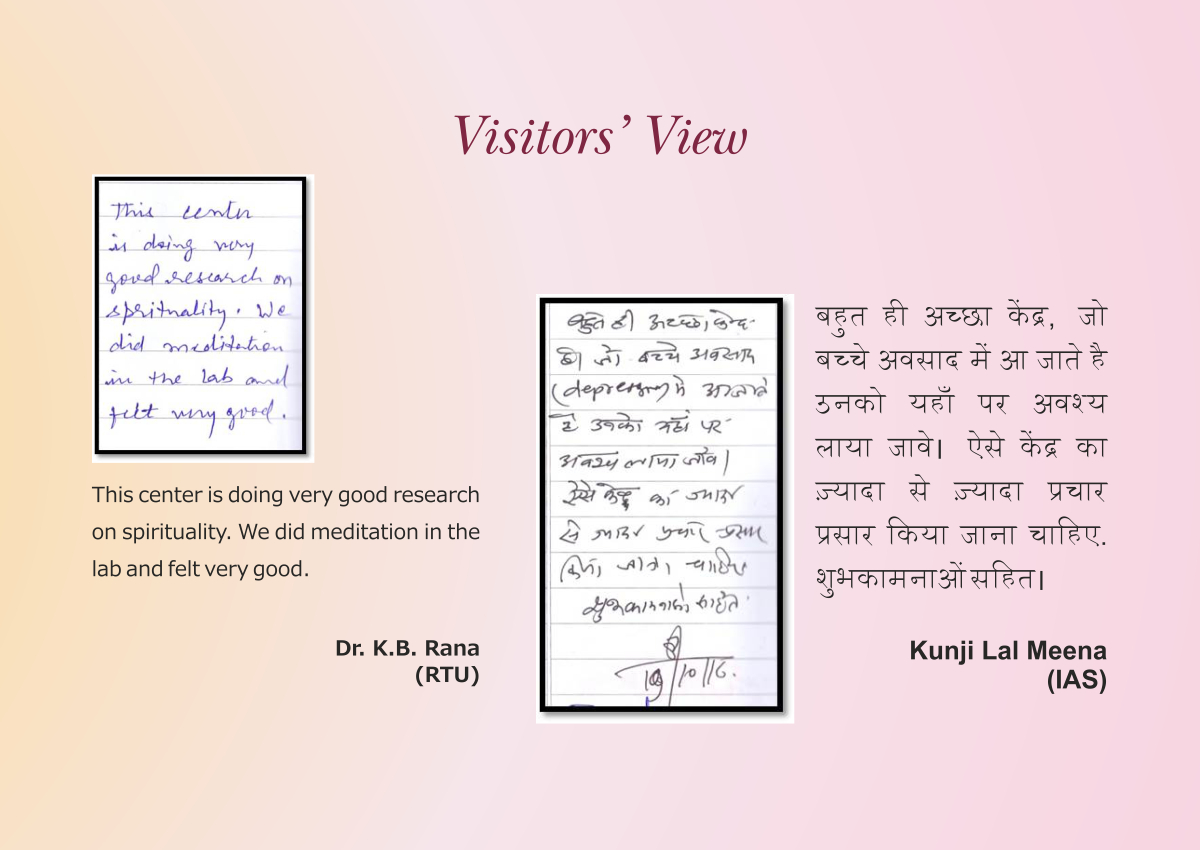 Visitors’ View
This center
is doing very
good research on
spirituality. We
did meditation
in the lab and
felt very good.
This center is doing very good research
on spirituality. We did meditation in the
lab and felt very good.
Dr. K.B. Rana
(RTU)
बहुत ही अच्छा केन्द्र
है। जो बच्चे अवसाद
(depression) में आ जाते
है उनको यहाँ पर
अवश्य लाया जावे।
ऐसे केन्द्र का ज्यादा
से ज्यादा प्रचार प्रसार
किया जाना चाहिए
शुभकामनाओं सहित
19/10/16.
बहुत ही अच्छा केंद्र, जो
बच्चे अवसाद में आ जाते है
उनको यहाँ पर अवश्य
लाया जावे। ऐसे केंद्र का
ज़्यादा से ज़्यादा प्रचार
प्रसार किया जाना चाहिए.
शुभकामनाओं सहित।
Kunji Lal Meena
(IAS)